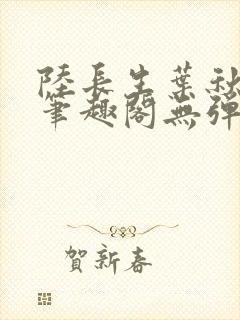 陸長生葉秋
筆趣閣無彈
賀新春